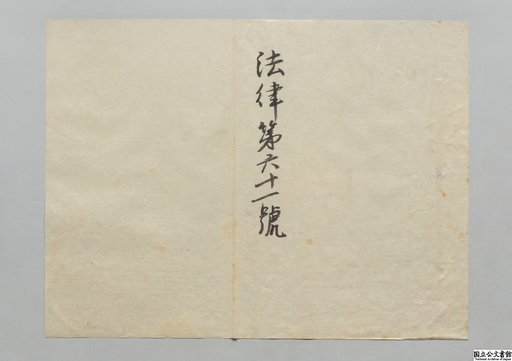 法律第六十一號
国立公文書館
National Archives of Japan